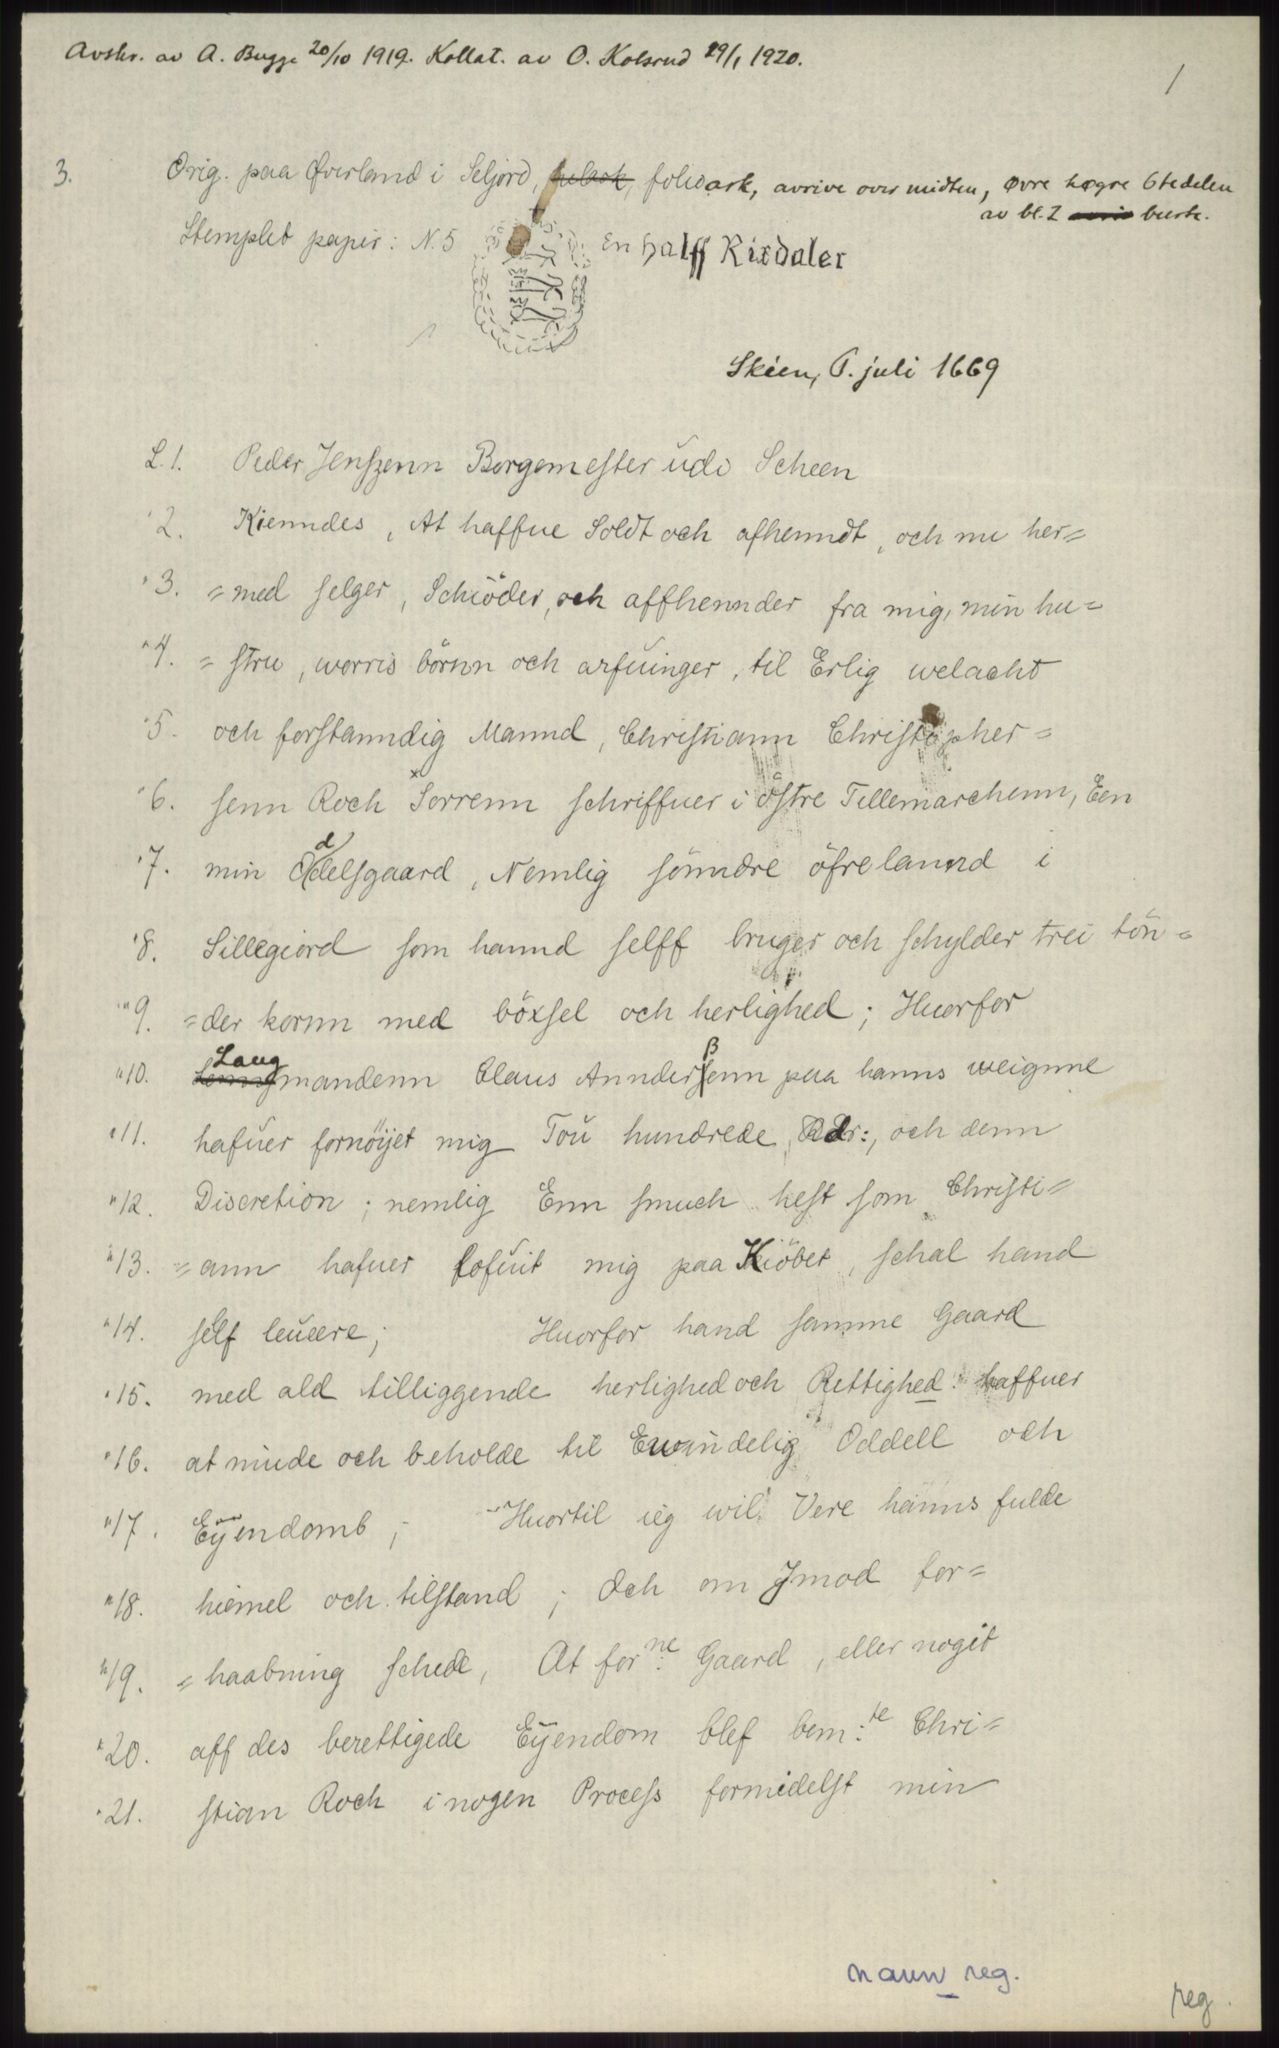 Avskr. av A. Bugge 20/10 1919. Kollat. av O. Kolsrud 29/1 1920.
1
3. Orig. paa Øverland i Seljord, folioark, avrive over midten, øvre høgre 6tedelen
av bl. 2 burte.
Stemplet papir: N. 5 En halff Rixdaler
Skien, 6. juli 1669
L. 1. Peder Jenszenn Borgemester udi Scheen
" 2. Kienndes, At haffue Soldt och afhenndt, och nu her=
" 3. =med selger, Schiöder, och affhennder fra mig, min hu=
" 4. =stru, worris börnn och arfuinger, til Erlig welacht
" 5. och forstanndig Mannd, Christiann Christopher=
" 6. senn Roch Sorrenn schriffuer i östre Tellemarchenn, Een
" 7. min Odelsgaard, Nemlig sönndre öfrelannd i
" 8. Sillegiord som hannd selff bruger och schylder trei tön=
" 9. =der kornn med böxsel och herlighed; Huorfor
" 10. Laugmandenn Claus Annderßenn paa hanns weignne
" 11. hafuer fornöyet mig Tou hundrede Rdr:, och denn
" 12. Discretion; nemlig Enn smuch hest som Christi=
" 13. =ann hafuer lofuit mig paa Kiöbet, schal hand
" 14. self leuere; Huorfor hand samme Gaard
" 15. med ald tilliggende herlighed och Rettighed haffuer
" 16. at niude och beholde til Ewindelig Oddell och
" 17. Eÿendomb; Huortil ieg wil Vere hanns fulde
" 18. hiemel och tilstand; Och om Jmod for=
" 19. =haabning schede, At for:ne Gaard, eller nogit
" 20. aff des berettigede Eÿendom blef bem:te Chri=
" 21. stian Roch i nogen Process formidelst min
navn reg.
reg.